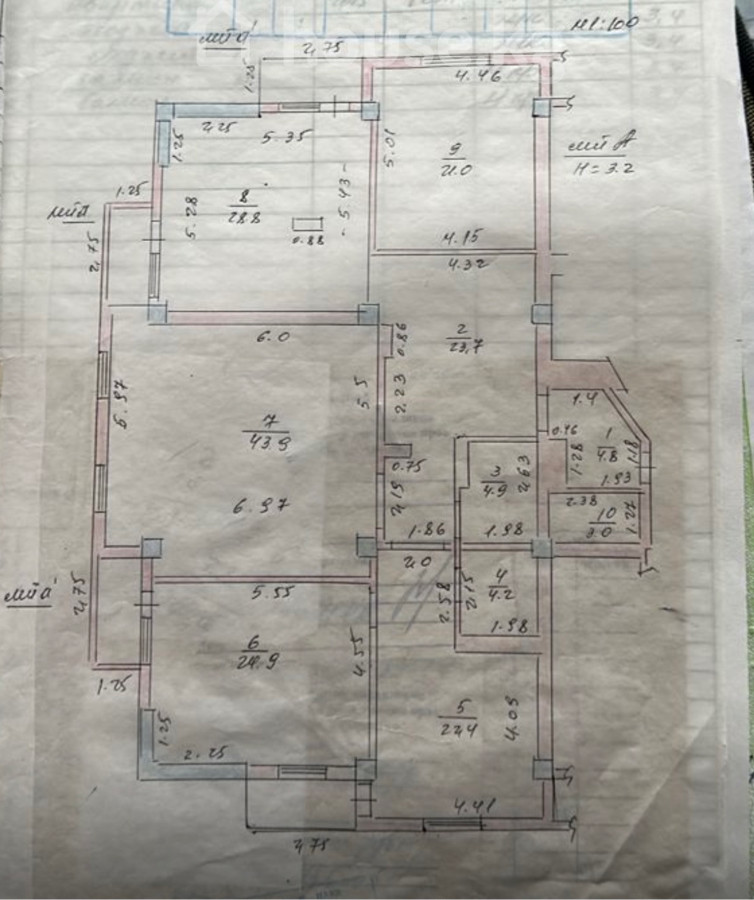 М1:100
лит а'
2,75
1.25
4.46
2.25
5.35
1.25
5.01
9
21.0
лит А
H=3.2
1.25
лит а
8
28.8
5.28
5.43
0.88
2,75
4.15
4.32
6.0
0.86
2
23,7
5.5
2.23
6.97
7
43.9
1.4
0.46
1
4.8
1.28
1.18
0.75
3
4.9
2.63
1.93
6.97
2.19
2.38
10
3.0
1.27
1.86
1.98
2.0
лит а"
2,75
5.55
2.58
2.15
4
4.2
6
24.9
4.55
1.98
1.25
1.25
5
22,4
4.09
2.25
4.41
2,75